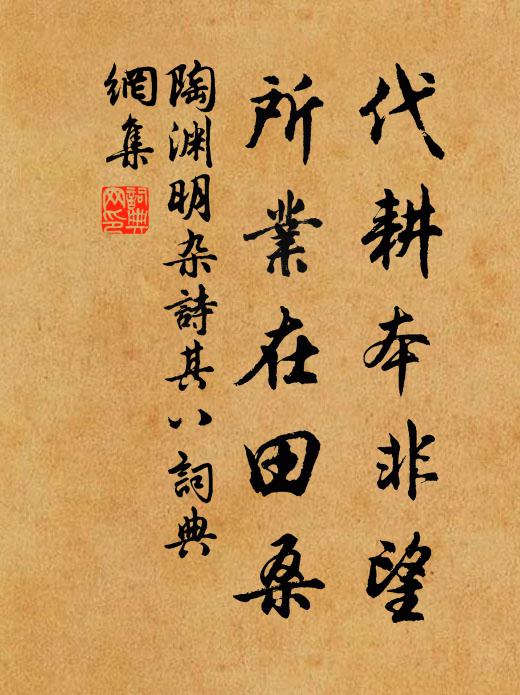 代耕本非望
所業在田桑
陶渊明杂詩其八詞典
網集
詞典
网印